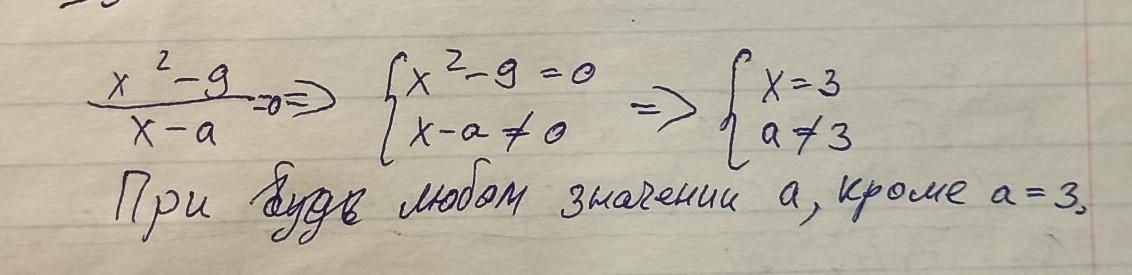 x²-9/x-a =0 => { x²-9=0 x-a≠0 => { x=3 a≠3
При любом значении а, кроме а=3,